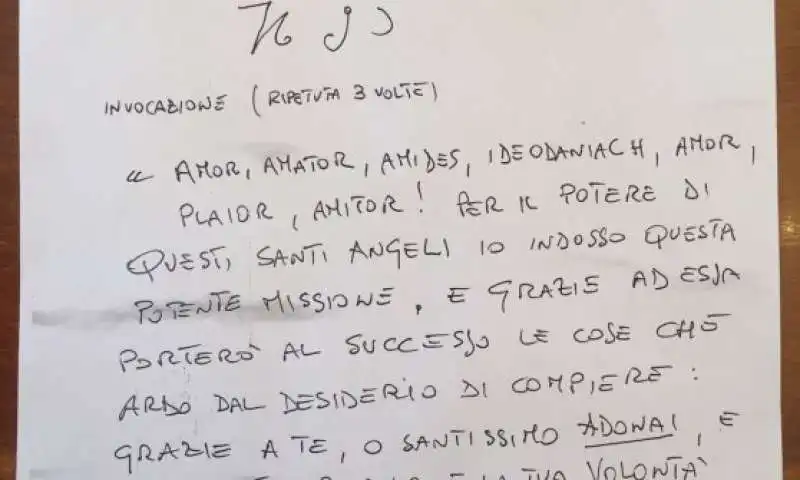 INVOCAZIONE (RIPETUTA 3 VOLTE)
« AMOR, AMATOR, AMIDES, IDEODANIACH, AMOR,
PLAIOR, AMITOR! PER IL POTERE DI
QUESTI SANTI ANGELI IO INDOSSO QUESTA
POTENTE MISSIONE, E GRAZIE AD ESSA
PORTERÒ AL SUCCESSO LE COSE CHE
ARDO DAL DESIDERIO DI COMPIERE:
GRAZIE A TE, O SANTISSIMO ADONAI, E
LA TUA VOLONTÀ